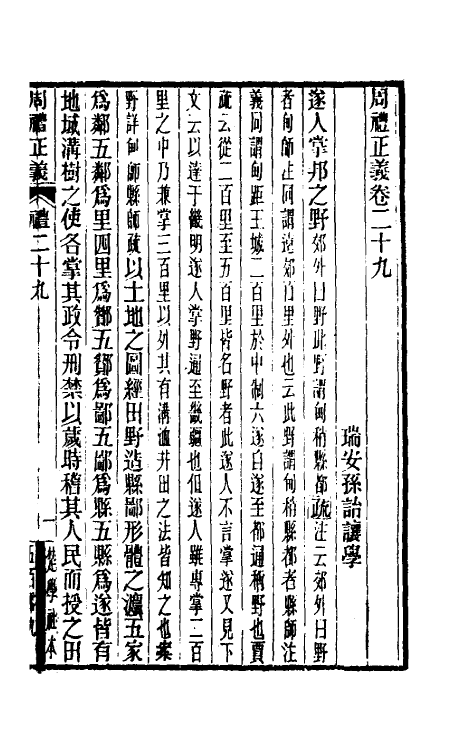 周禮正義卷二十九
瑞安孫詒讓學
遂人掌邦之野郊外曰野此野謂甸稍縣都疏注云郊外曰野
者甸師注同謂遠郊百里外也云此野謂甸稍縣都者縣師注
義同謂甸距王城二百里於中制六遂自遂至都通稱野也賈
疏云從二百里至五百里皆名野者此遂人不言掌遂又見下
文云以達于畿明遂人掌野通至畿疆也但遂人雖專掌二百
里之中乃兼掌三百里以外其有溝洫井田之法皆知之也案
野詳甸師縣師疏以土地之圖經田野造縣鄙形體之灋五家
爲鄰五鄰爲里四里爲酇五酇爲鄙五鄙爲縣五縣爲遂皆有
地域溝樹之使各掌其政令刑禁以歲時稽其人民而授之田
周禮正義 禮二十九 一 楚學社本